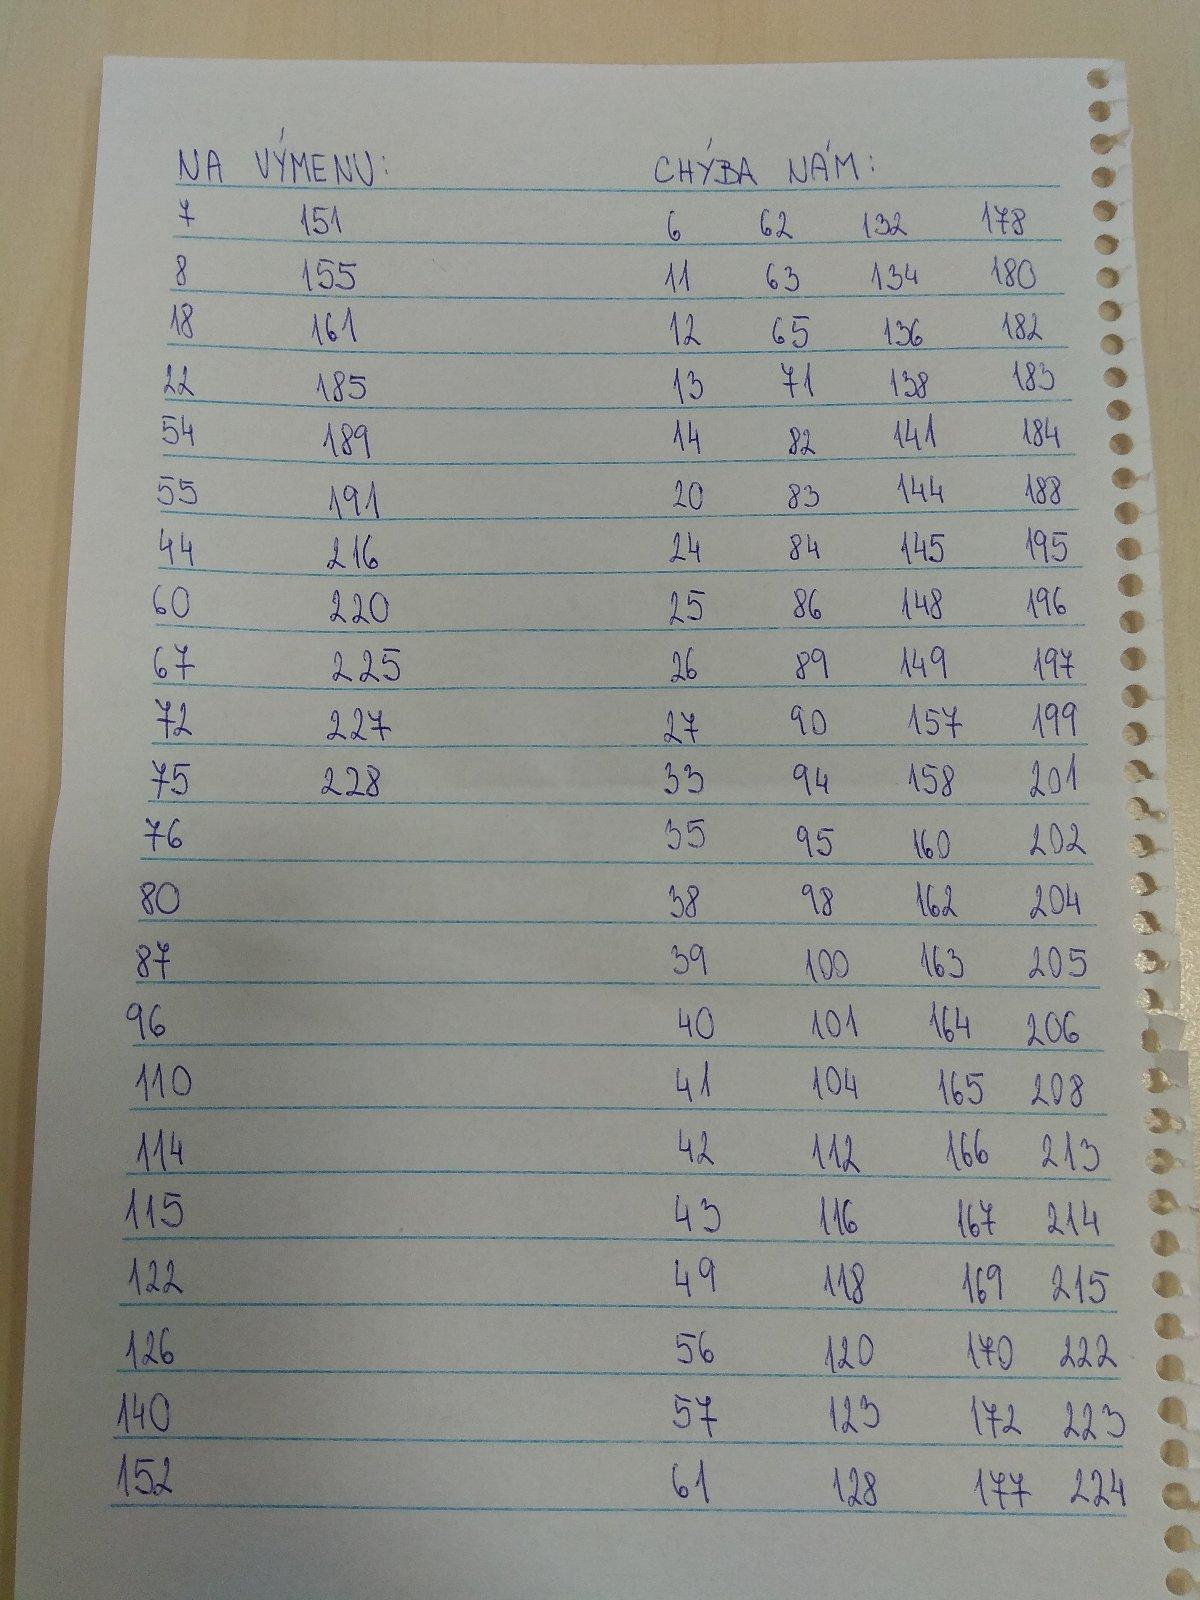 NA VÝMENU: CHÝBA NÁM:
7 151 6 62 132 178
8 155 11 63 134 180
18 161 12 65 136 182
22 185 13 71 138 183
54 189 14 82 141 184
55 191 20 83 144 188
44 216 24 84 145 195
60 220 25 86 148 196
67 225 26 89 149 197
72 227 27 90 157 199
75 228 33 94 158 201
76 35 95 160 202
80 38 98 162 204
87 39 100 163 205
96 40 101 164 206
110 41 104 165 208
114 42 112 166 213
115 43 116 167 214
122 49 118 169 215
126 56 120 170 222
140 57 123 172 223
152 61 128 177 224